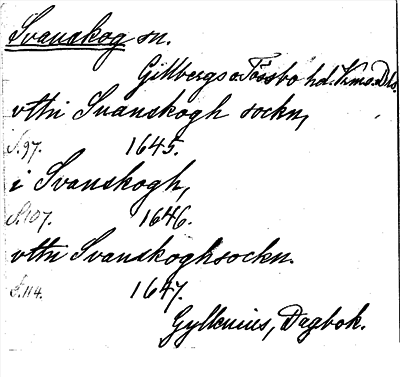 Svanskog sn.
Gillbergs o Tössbo hd. Vrms. o Dls.
vttri Suanskogh sockn,
S. 97. 1645.
i Svanskogh,
S. 107. 1646.
vttri Svanskoghsockn.
S. 114. 1647.
Gyllenius, Dagbok.